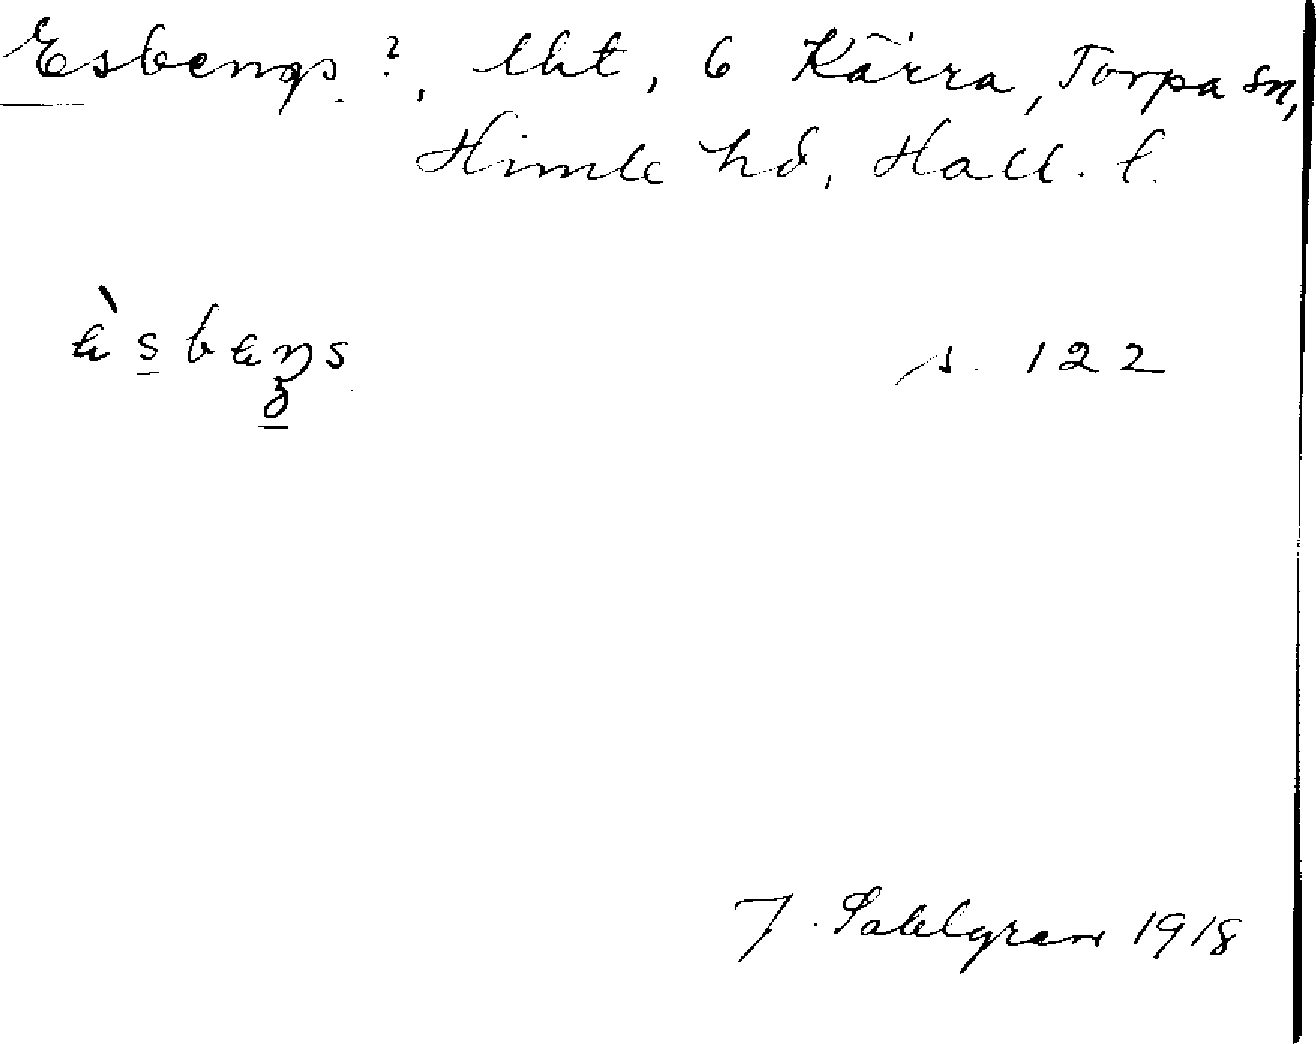 Esbengs ?, lht, 6 Kärra, Torpa sn,
Himle hd, Hall. l.
s. 122
J. Sahlgren 1918